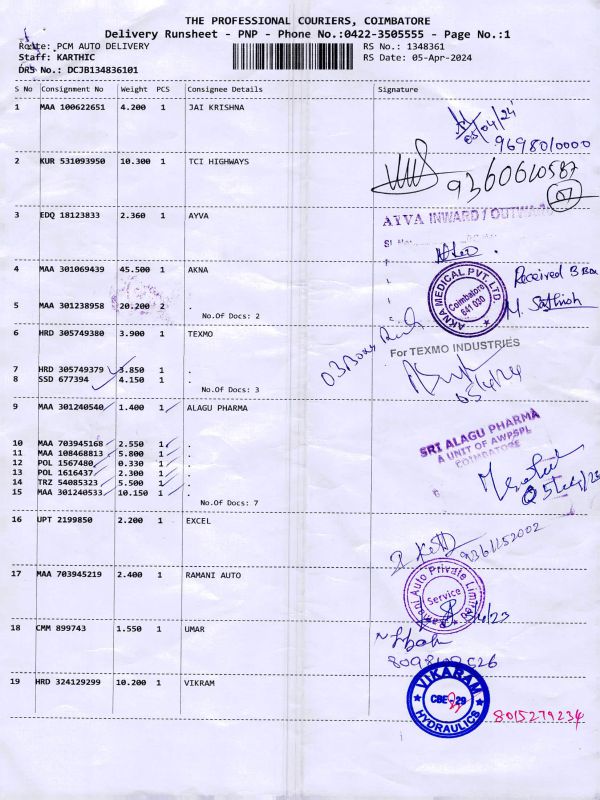 THE PROFESSIONAL COURIERS, COIMBATORE
Delivery Runsheet - PNP - Phone No.:0422-3505555 - Page No.:1
Route: PCM AUTO DELIVERY
RS No.: 1348361
Staff: KARTHIC
RS Date: 05-Apr-2024
DRS No.: DCJB134836101
S No Consignment No Weight PCS Consignee Details Signature
1 MAA 100622651 4.200 1 JAI KRISHNA
05/04/24
9698010000
2 KUR 531093950 10.300 1 TCI HIGHWAYS
9360610587
07
3 EDQ 18123833 2.360 1 AYVA
AYVA INWARD / OUTWARD
4 MAA 301069439 45.500 1 AKNA
AKNA MEDICAL PVT. LTD.
Coimbatore
641 030
Received 3 Box
M. Sathish
5 MAA 301238958 20.200 2 .
No.Of Docs: 2
6 HRD 305749380 3.900 1 TEXMO
03 Box
For TEXMO INDUSTRIES
7 HRD 305749379 3.850 1 .
8 SSD 677394 4.150 1 .
No.Of Docs: 3
05/4/24
9 MAA 301240540 1.400 1 ALAGU PHARMA
SRI ALAGU PHARMA
A UNIT OF AWPSPL
COIMBATORE
10 MAA 703945168 2.550 1 .
11 MAA 108468813 5.800 1 .
12 POL 1567480 0.330 1 .
13 POL 1616437 2.300 1 .
14 TRZ 54085323 5.500 1 .
15 MAA 301240533 10.150 1 .
No.Of Docs: 7
16 UPT 2199850 2.200 1 EXCEL
17 MAA 703945219 2.400 1 RAMANI AUTO
Ramani Auto Private Limited
Service
18 CMM 899743 1.550 1 UMAR
19 HRD 324129299 10.200 1 VIKRAM
VIKARAM
CBE-29
HYDRAULICS
8015279234